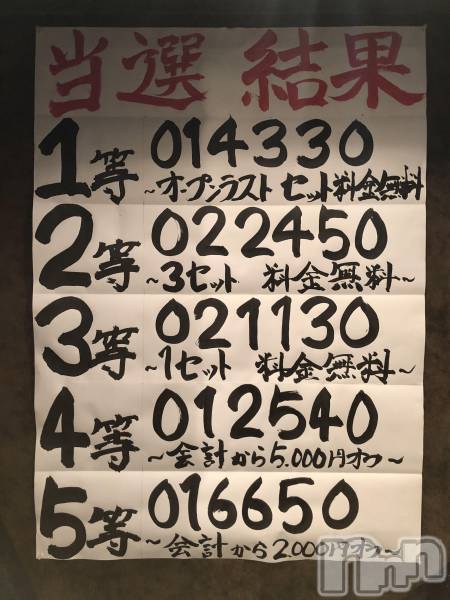 当選 結果
1等 014330
~オープンラスト セット料金無料
2等 022450
~3セット 料金無料~
3等 021130
~1セット 料金無料~
4等 012540
~会計から5.000円オフ~
5等 016650
~会計から2000円オフ~